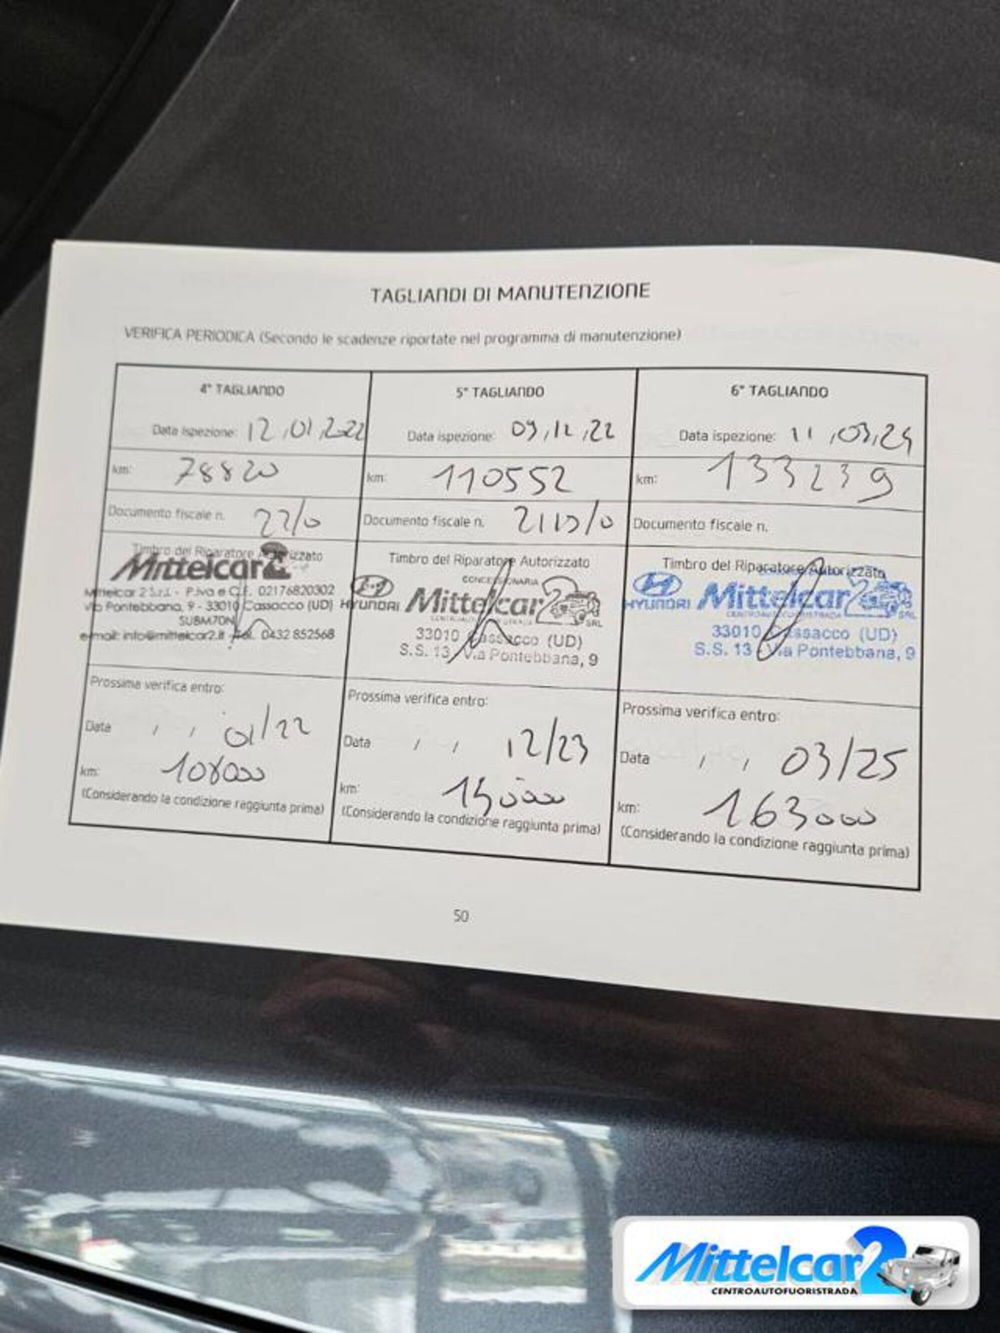 TAGLIANDI DI MANUTENZIONE
VERIFICA PERIODICA (Secondo le scadenze riportate nel programma di manutenzione)
4° TAGLIANDO
Data ispezione: 12,01,2022
km: 78820
Documento fiscale n. 22/0
Timbro del Riparatore Autorizzato
Mittelcar2
Mittelcar 2 S.r.l. - P.Iva e C.F. 02176820302
Via Pontebbana, 9 - 33010 Cassacco (UD)
SUBM70N
e-mail: info@mittelcar2.it - Tel. 0432 852568
Prossima verifica entro:
Data , , 01/22
km: 108000
(Considerando la condizione raggiunta prima)
5° TAGLIANDO
Data ispezione: 09,12,22
km: 110552
Documento fiscale n.
Timbro del Riparatore Autorizzato
CONCESSIONARIA
HYUNDAI Mittelcar2 SRL
33010 Cassacco (UD)
S.S. 13 Via Pontebbana, 9
Prossima verifica entro:
Data , , 12/23
km:
(Considerando la condizione raggiunta prima)
6° TAGLIANDO
Data ispezione: 11,03,24
km: 133239
Documento fiscale n.
Timbro del Riparatore Autorizzato
HYUNDAI Mittelcar2 SRL
CENTROAUTOFUORISTRADA
33010 Cassacco (UD)
S.S. 13 Via Pontebbana, 9
Prossima verifica entro:
Data , , 03/25
km: 163000
(Considerando la condizione raggiunta prima)
50
Mittelcar2
CENTROAUTOFUORISTRADA